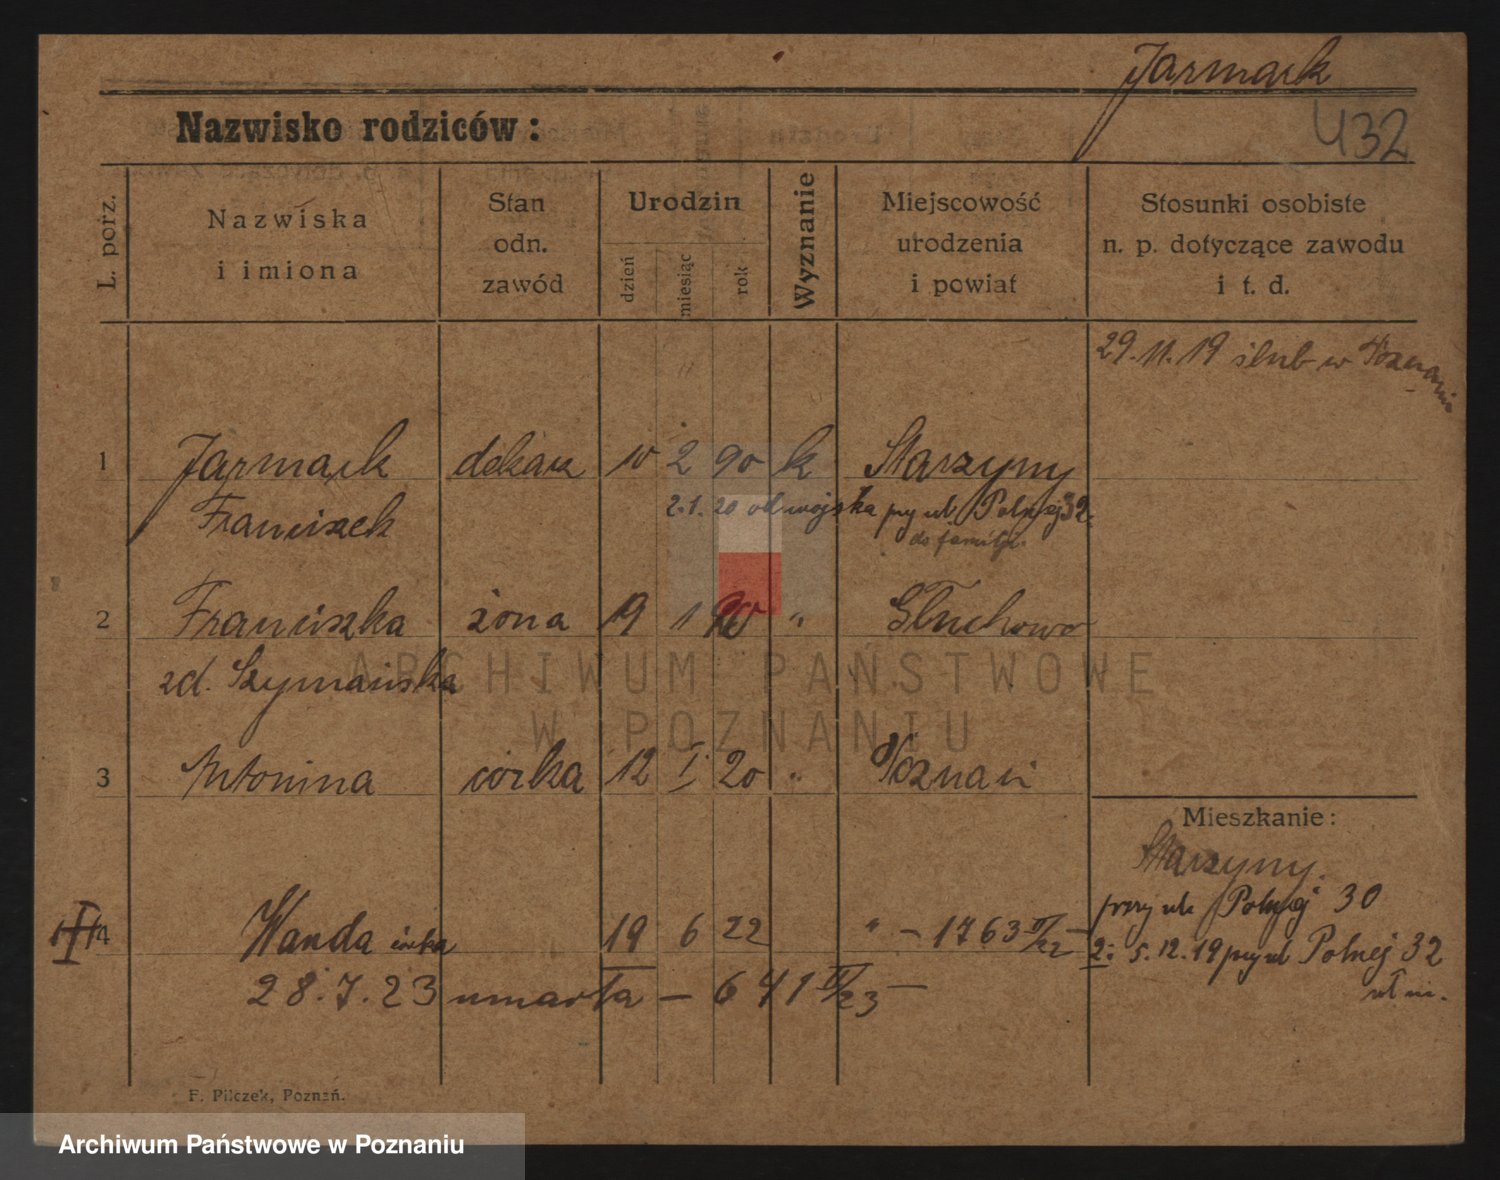 Jarmark
432
Nazwisko rodziców:
L. porz.
Nazwiska
i imiona
Stan
odn.
zawód
Urodzin
dzień
miesiąc
rok
Wyznanie
Miejscowość
urodzenia
i powiat
Stosunki osobiste
n. p. dotyczące zawodu
i t. d.
29.11.19 ślub w Poznaniu
1 Jarmark dekarz 10 2 90 k Starzyny
Franciszek 2.1.20 od wojska przy ul. Polnej 32.
do familji.
2 Franciszka żona 19 1 90 " Głuchowo
zd. Szymańska
ARCHIWUM PAŃSTWOWE
W POZNANIU
3 Antonina córka 12 I 20 " Poznań
Mieszkanie:
Starzyny.
przy ul. Polnej 30
4 Wanda córka 19 6 22 " – 1763 /22 –
2: 5.12.19 przy ul Polnej 32
28.7.23 umarła – 641 /23 –
F. Pilczek, Poznań.
Archiwum Państwowe w Poznaniu